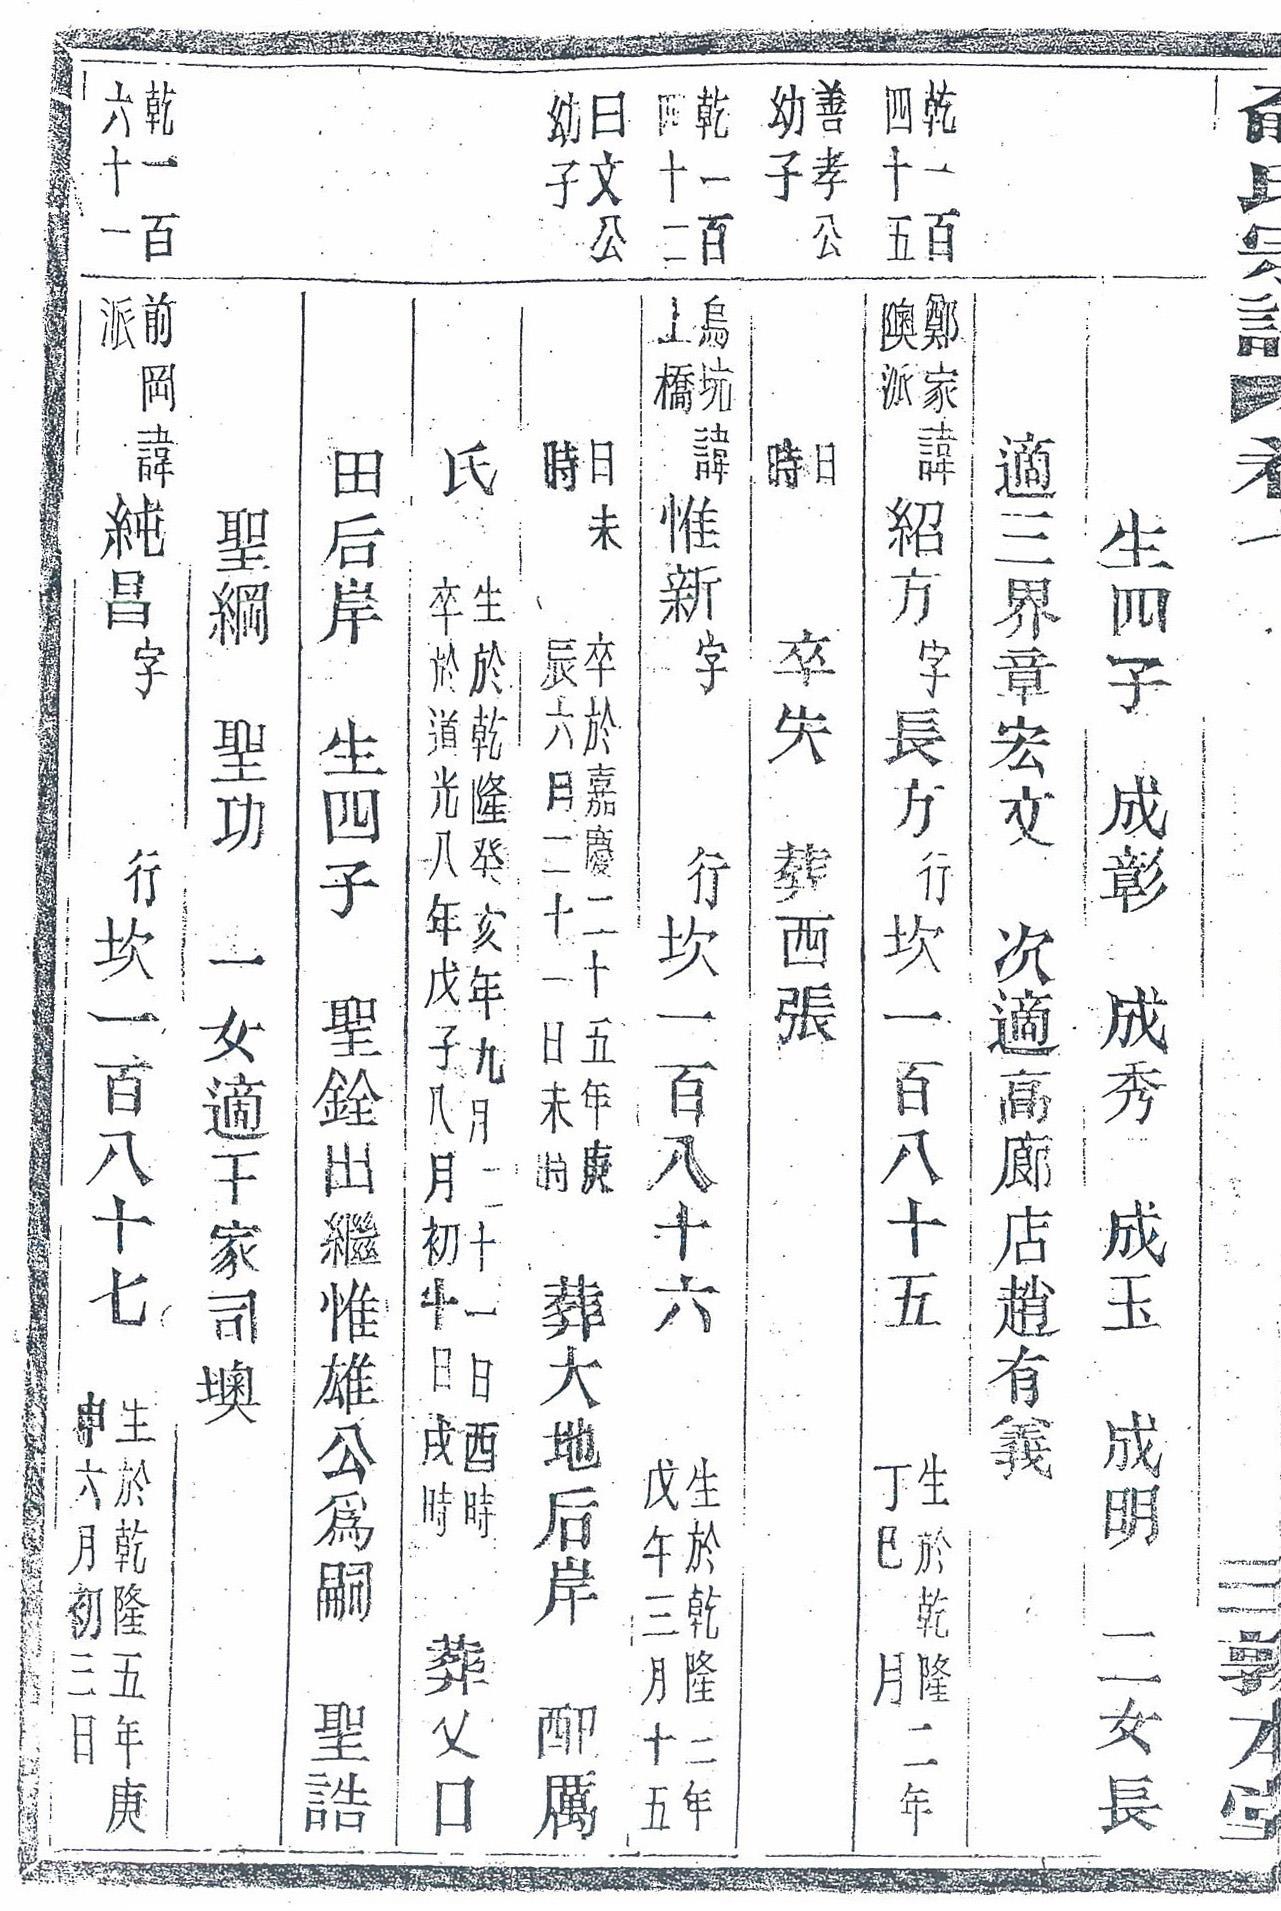 氏宗譜 卷一 三 敦本堂
生四子 成彰 成秀 成玉 成明 二女長
適三界章宏文 次適高廊店趙有義
乾一百
四十五
鄭家
陳派
諱紹方字長方行坎一百八十五
生於乾隆二年
丁巳 月
善孝公
幼子
日
時
卒失 葬西張
乾一百
四十二
烏坑
上橋
諱惟新字 行坎一百八十六
生於乾隆二年
戊午三月十五
曰文公
幼子
日未
時
卒於嘉慶二十五年庚
辰六月二十一日未時
葬大地后岸 配厲
氏
生於乾隆癸亥年九月二十一日酉時
卒於道光八年戊子八月初十日戌時
葬父口
田后岸 生四子 聖銓出繼惟雄公爲嗣 聖誥
聖綱 聖功 一女適干家司墺
乾一百
六十一
前岡
派
諱純昌字 行坎一百八十七
生於乾隆五年庚
申六月初三日